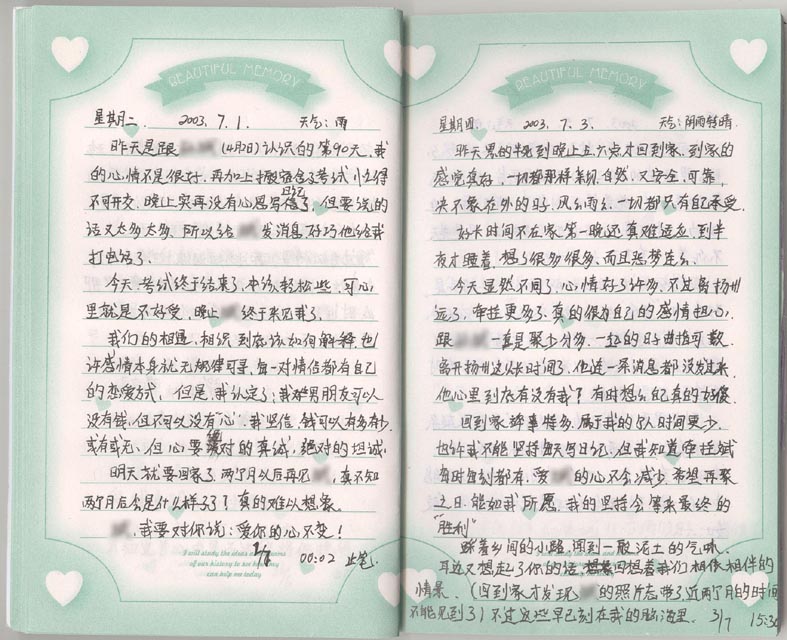 BEAUTIFUL MEMORY
星期二 2003. 7. 1. 天气: 雨
昨天是跟 (4月2日) 认识的第90天. 我
的心情不是很好. 再加上 考试 忙得
不可开交. 晚上实再没有心思写日记了. 但要说的
话又太多太多. 所以给 发消息. 好巧他给我
打电话了.
今天考试终于结束了. 本该轻松些. 可心
里就是不好受. 晚上 终于来见我了.
我们的相遇. 相识到底该如何解释. 也
许感情本身就无规律可寻. 每一对情侣都有自己
的恋爱方式. 但是. 我认定了: 我 男朋友可以
没有钱. 但不可以没有“心”. 我坚信. 钱可以有多有少.
或有或无. 但心要绝对的真诚, 绝对的坦诚.
明天就要回家了. 两个月以后再见 . 真不知
两个月后会是什么样子了? 真的难以想象.
. 我要对你说: 爱你的心不变!
I will study the ideas and dreams
of our history to see how they
can help me today
1/7 00:02 止笔.
BEAUTIFUL MEMORY
星期四. 2003. 7. 3. 天气: 阴雨转晴.
昨天累的半死到晚上五六点才回到家. 到家的
感觉真好. 一切都那样亲切. 自然. 又安全. 可靠.
决不象在外的日子. 风么雨么. 一切都只有自己承受.
好长时间不在家. 第一晚还真难适应. 到半
夜才睡着. 想了很多很多. 而且恶梦连么.
今天显然不同了. 心情好了许多. 不过离扬州
远了. 牵挂更多了. 真的很为自己的感情担心.
跟 一直是聚少分多. 一起的日子曲指可数.
离开扬州这么长时间了. 他连一条消息都没发过来.
他心里到底有没有我? 有时想么自己真的好傻.
回到家 事特多. 属于我的私人时间更少.
也许我不能坚持每天写日记. 但我知道牵挂
每时每刻都有. 爱 的心不会减少. 希望再聚
之日. 能如我所愿. 我的坚持会等来最终的
“胜利”
踩着乡间的小路. 闻到一股泥土的气味.
耳边又想起了你的话. 回想着我们相依相伴的
情景. (回到家才发现 的照片忘带了. 近两个月的时间
不能见到了) 不过这些早已刻在我的脑海里. 3/7